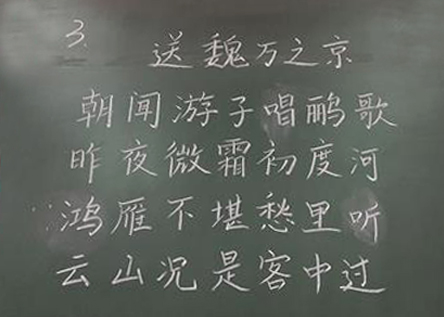 3.
送魏万之京
朝闻游子唱鹂歌
昨夜微霜初度河
鸿雁不堪愁里听
云山况是客中过